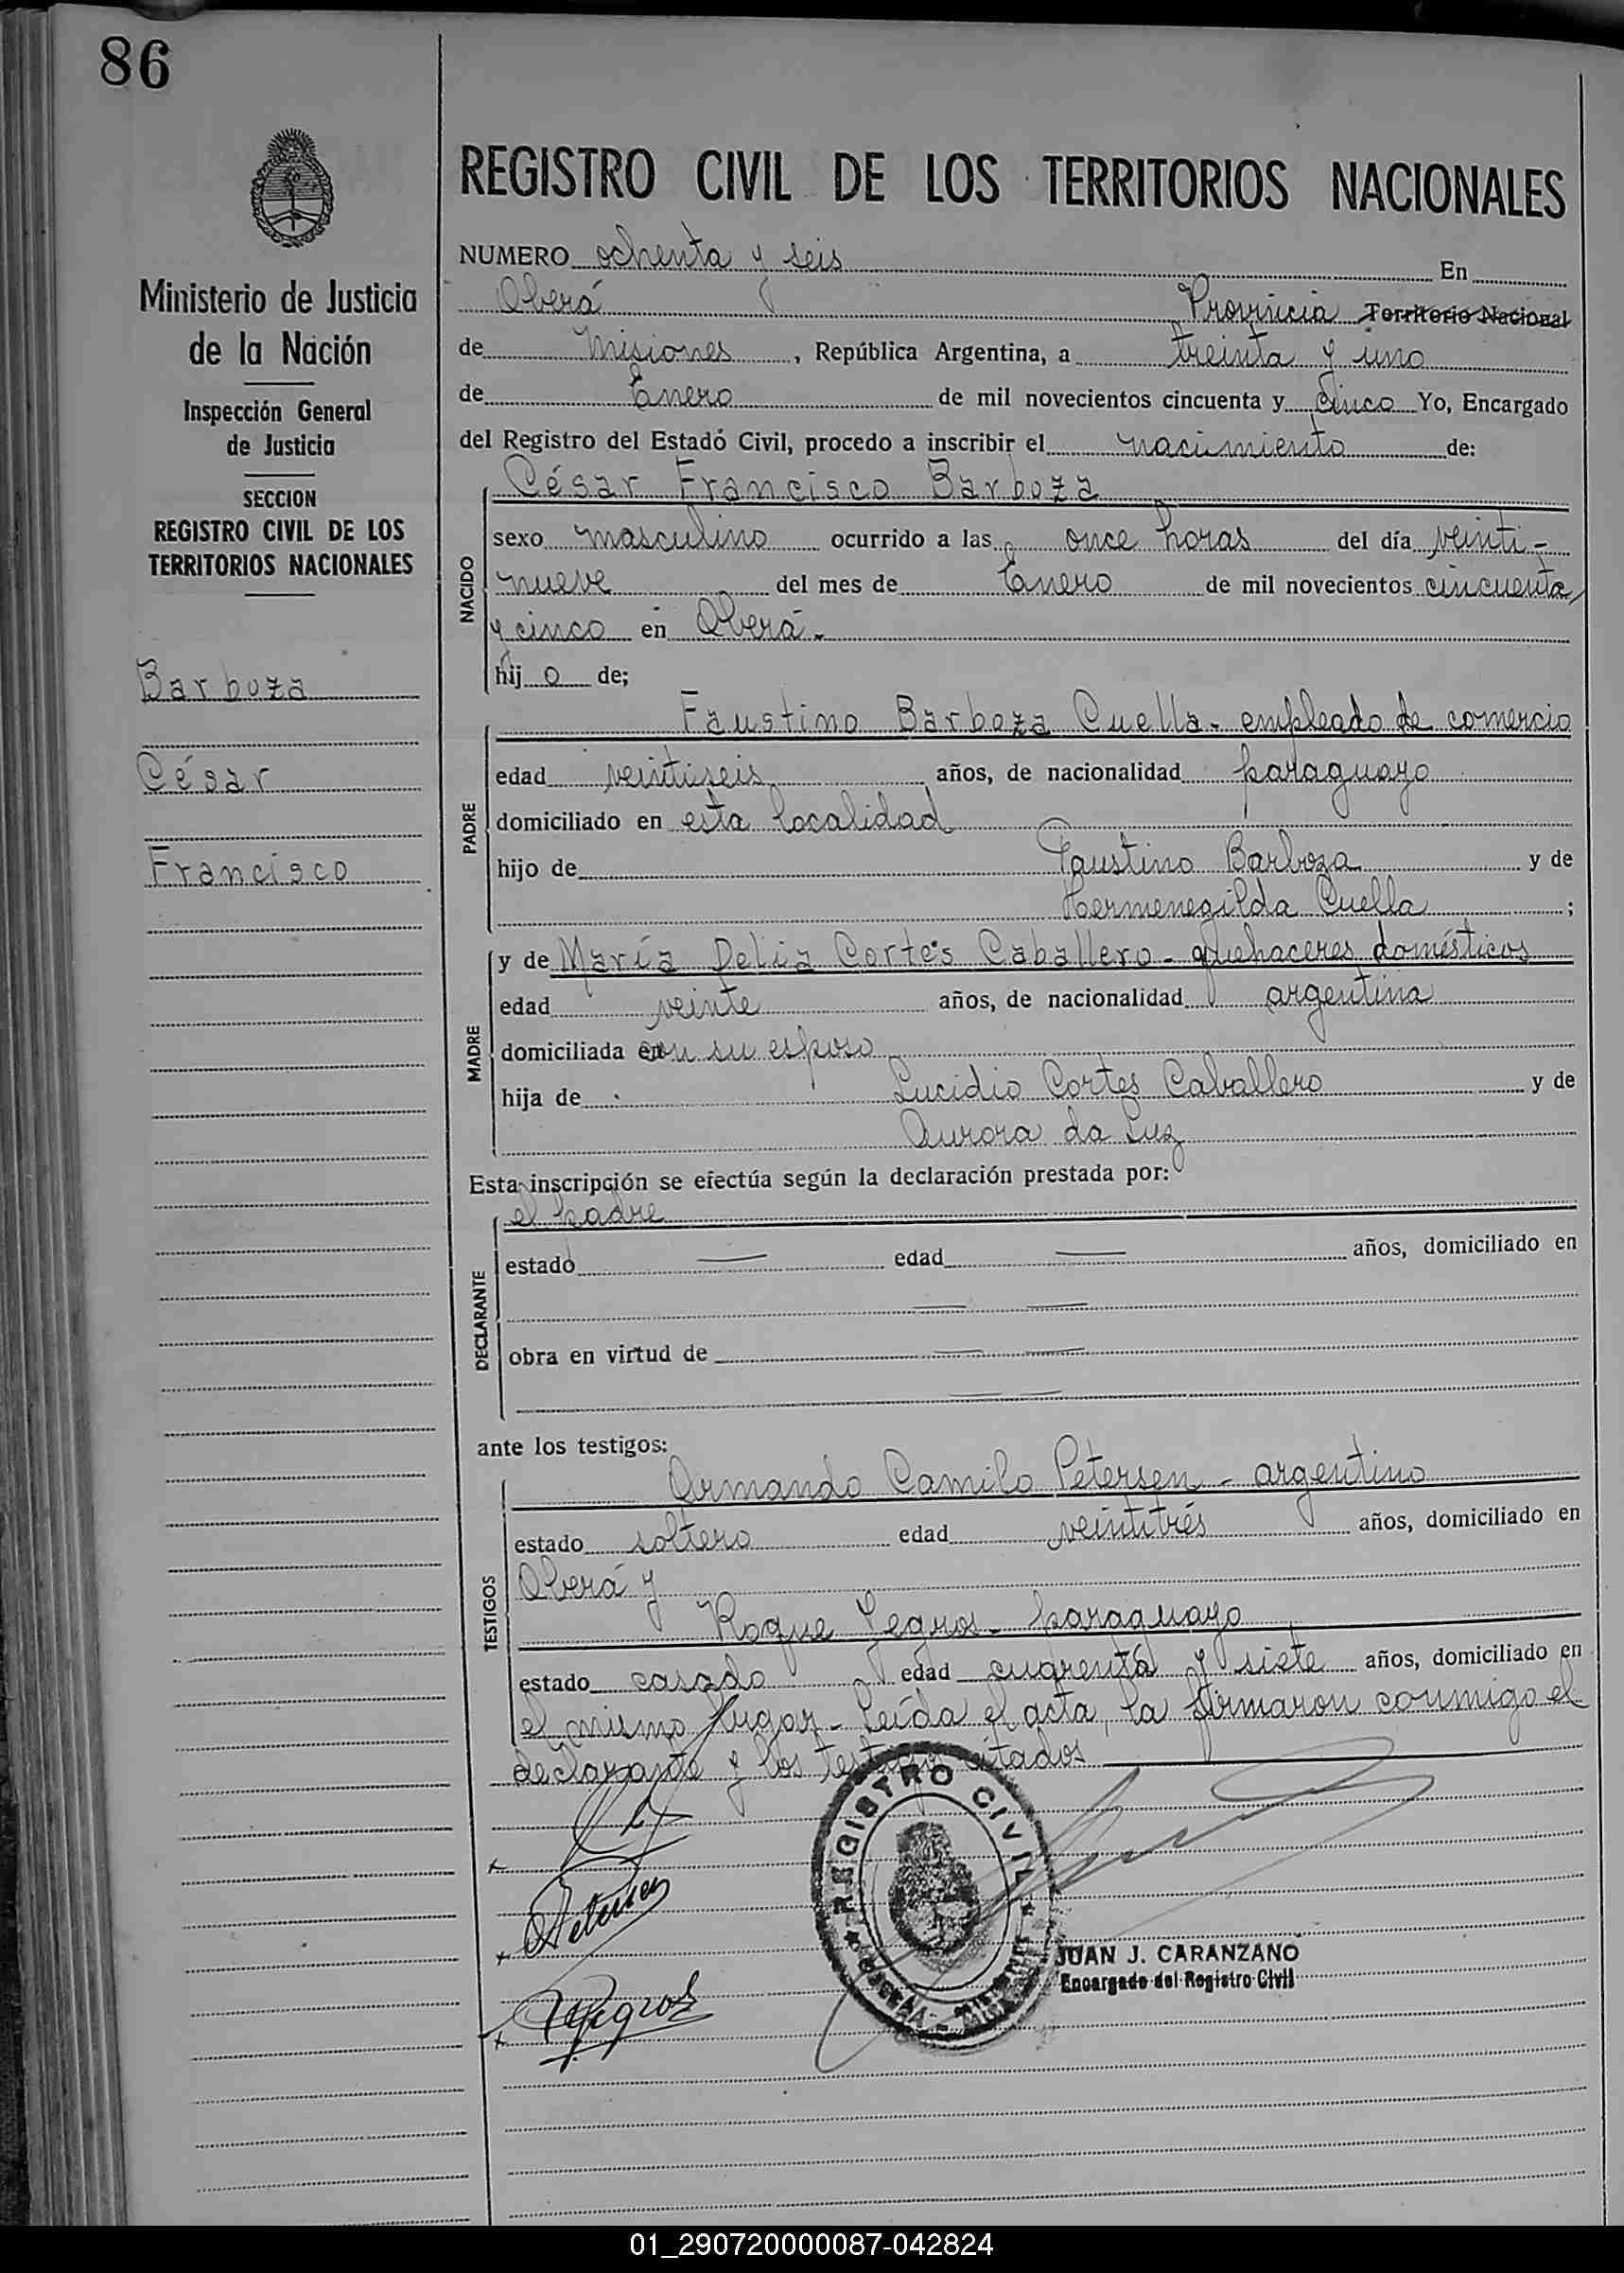 86
Ministerio de Justicia
de la Nación
Inspección General
de Justicia
SECCION
REGISTRO CIVIL DE LOS
TERRITORIOS NACIONALES
Barboza
César
Francisco
REGISTRO CIVIL DE LOS TERRITORIOS NACIONALES
NUMERO ochenta y seis En
Oberá Provincia Territorio Nacional
de Misiones, República Argentina, a treinta y uno
de Enero de mil novecientos cincuenta y cinco Yo, Encargado
del Registro del Estado Civil, procedo a inscribir el nacimiento de:
César Francisco Barboza
NACIDO
sexo masculino ocurrido a las once horas del día veinti-
nueve del mes de Enero de mil novecientos cincuenta
y cinco en Oberá.
hijo de;
Faustino Barboza Cuella - empleado de comercio
PADRE
edad veintiseis años, de nacionalidad paraguayo
domiciliado en esta localidad
hijo de Faustino Barboza y de
Hermenegilda Cuella ;
MADRE
y de María Delia Cortés Caballero - quehaceres domésticos
edad veinte años, de nacionalidad argentina
domiciliada con su esposo
hija de Lucidio Cortes Caballero y de
Aurora da Luz
Esta inscripción se efectúa según la declaración prestada por:
el padre
DECLARANTE
estado — edad — años, domiciliado en
— —
obra en virtud de — —
— —
ante los testigos:
TESTIGOS
Armando Camilo Petersen - argentino
estado soltero edad veintitrés años, domiciliado en
Oberá y
Roque Legros - paraguayo
estado casado edad cuarenta y siete años, domiciliado en
el mismo lugar - Leída el acta, la firmaron conmigo el
declarante y los testigos citados
Petersen
Legros
REGISTRO CIVIL
OBERA - MISIONES
JUAN J. CARANZANO
Encargado del Registro Civil
01_290720000087-042824